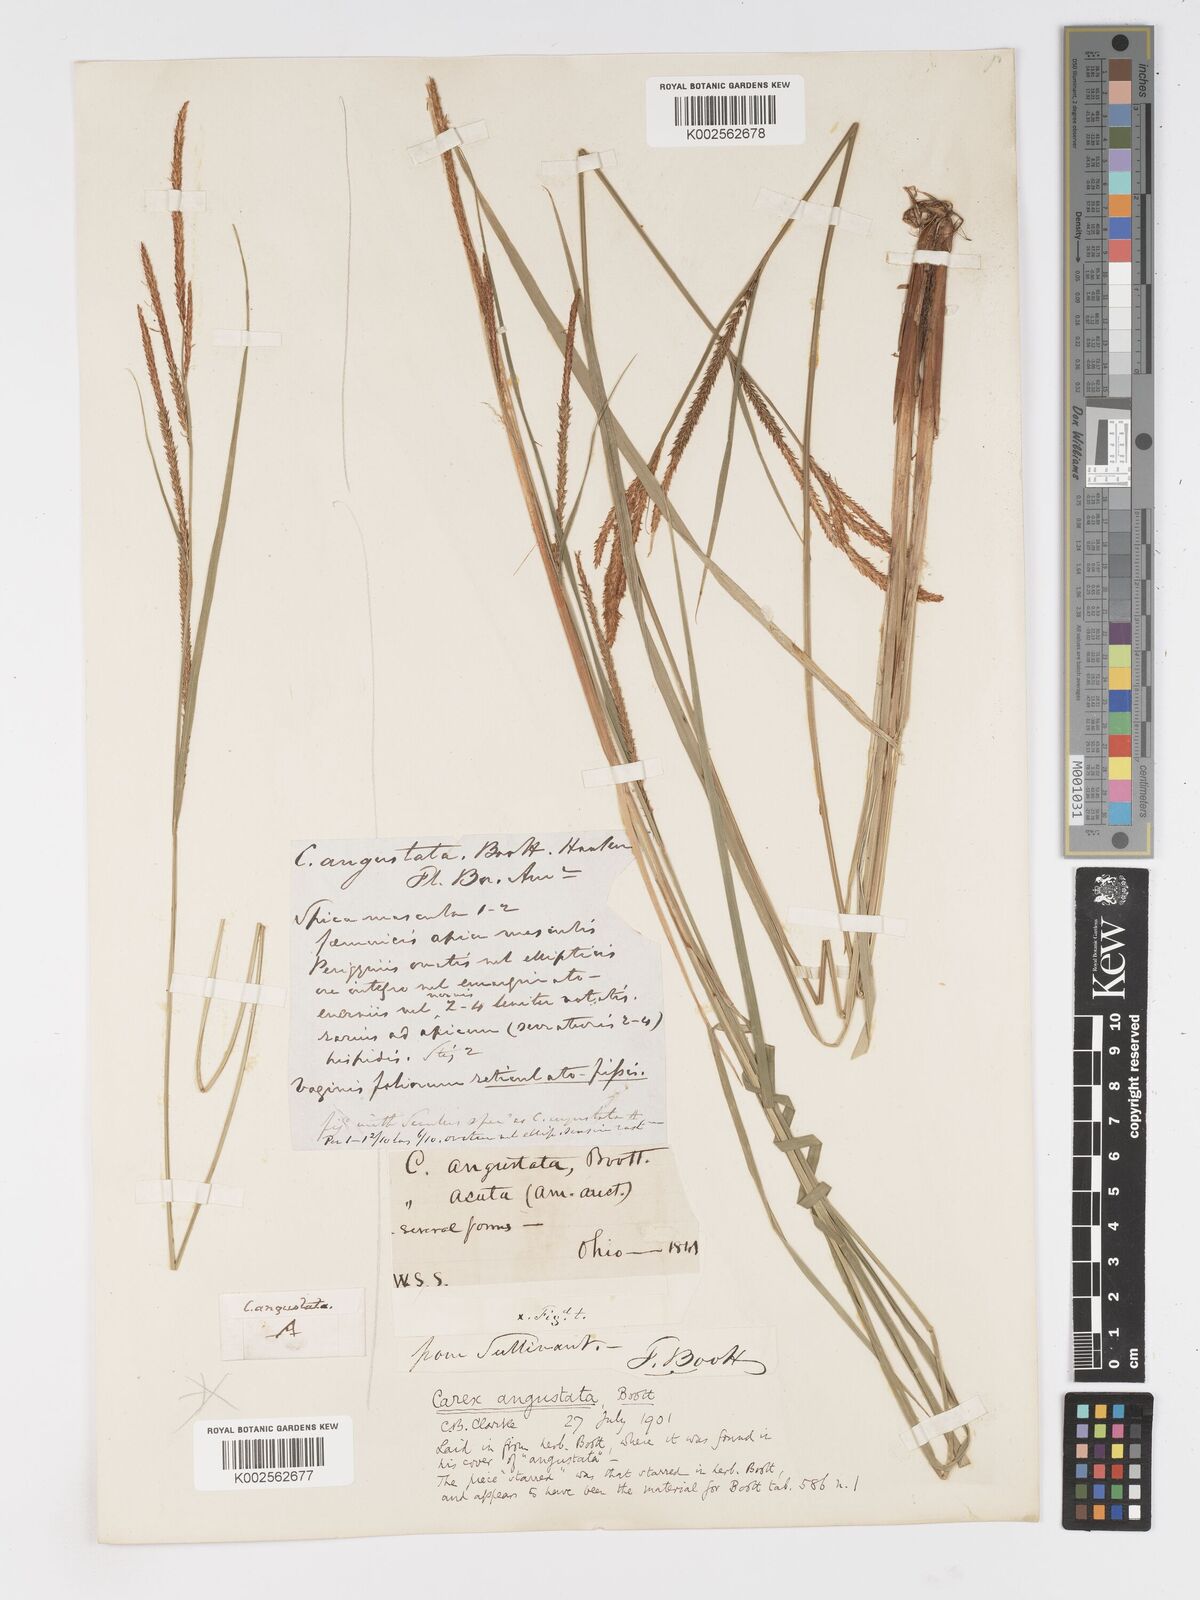 ROYAL BOTANIC GARDENS KEW
K002562678
C. angustata. Boott. Hooker
Fl. Bor. Am
Spica mascula 1-2
foemineis apice masculis
Perigyniis ovatis vel ellipticis
ore integro vel emarginato
enerviis vel nervis 2-4 leviter notatis.
rarius ad apicem (serraturis 2-4)
hispidis. Stig 2
Vaginis foliorum reticulato-fissis.
C. angustata
C. angustata, Boott.
" acuta (Am. auct.)
several forms —
Ohio — 1841
W.S.S.
x. Figd. t.
from Sullivant. —
F. Boott
C. angustata.
A
Carex angustata, Boott
C.B. Clarke 27 July 1901
Laid in from herb. Boott, where it was found in
his cover of "angustata" —
The piece "starred" was that starred in herb. Boott,
and appears to have been the material for Boott tab. 586 n. 1
ROYAL BOTANIC GARDENS KEW
K002562677
inches
centimeters
Density
Don Williams
M001031
Royal Botanic Gardens
Kew
copyright reserved
0 1 2 3 4 5 6 7 8 9 10
cm